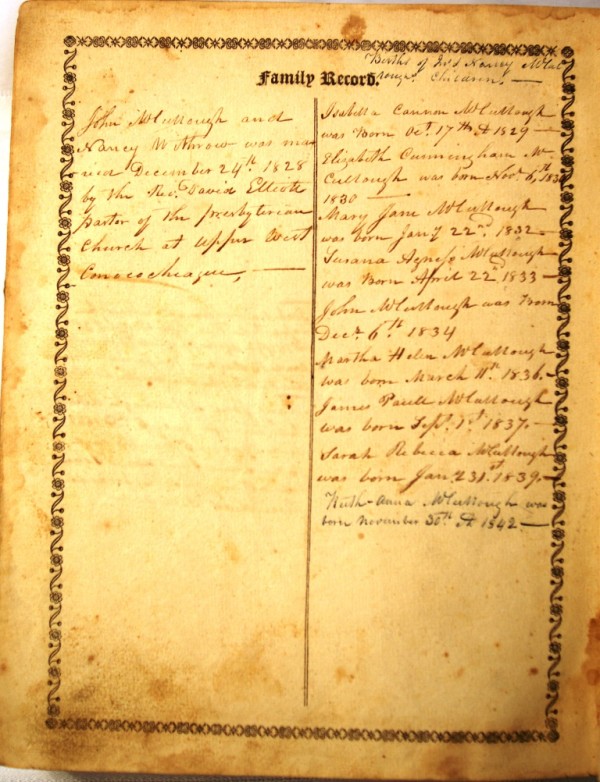 Births of Jno & Nancy McCul
lough's Children. —
Family Record.
John McCullough and
Nancy Withrow was mar
ried December 24th. 1828
by the Rev. David Elliott
pastor of the presbyterian
Church at Upper West
Conococheague, —
Isabella Cannon McCullough
was Born Oct. 17th A 1829 —
Elizabeth Cunningham Mc
Cullough was born Nov. 6th, 1830
1830 —
Mary Jane McCullough
was born Jany 22nd. 1832 —
Susana Agness McCullough
was Born April 22nd. 1833 —
John McCullough was Born
Dect. 6th. 1834
Martha Helen McCullough
was born March 11th. 1836. —
James Paull McCullough
was born Sept. 1st. 1837. —
Sarah Rebecca McCullough
was born Jan. 31st. 1839. —
Ruth-Anna McCullough was
born November 30th A 1842. —